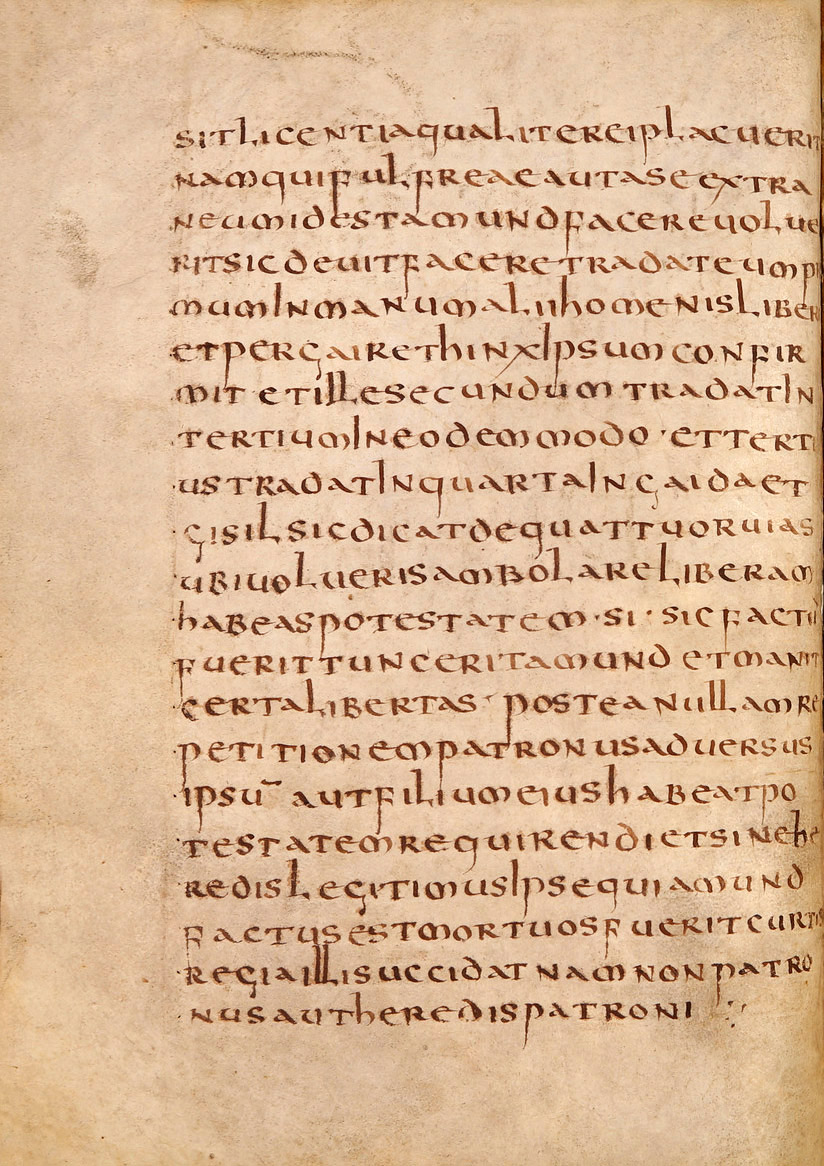 sit licentia qualiter ei placuerit
nam qui fulfreae aut a se extra
neum id est amund facere uolue
rit sic deuit facere tradat eum pri
mum In manum aliu homenis liber
et per gairethinx Ipsum confir
mit et ille secundum tradat In
tertium In eodem modo · et terti
us tradat In quarta In gaida et
gisil sic dicat de quattuor uias
ubi uolueris ambolare liberam
habeas potestatem · si · sic factū
fuerit tunc erit amund et manit
certa libertas · postea nullam re
petitionem patronus aduersus
ipsū aut filium eius habeat po
testatem requirendi et sine he
redis legitimus Ipse qui amund
factus est mortuos fuerit curtis
regia illi succidat nam non patro
nus aut heredis patroni